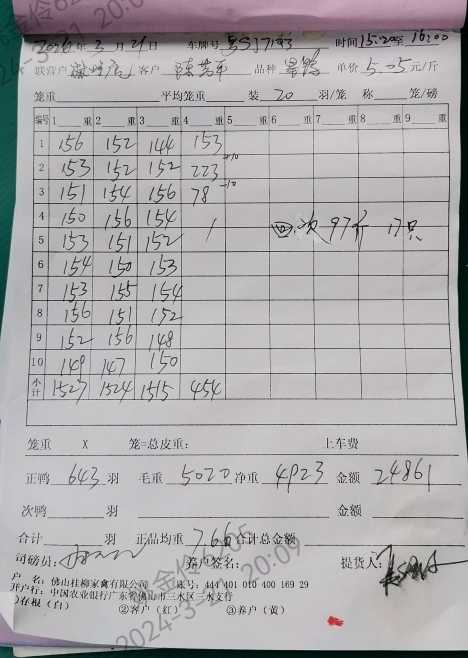 2024年3月21日 车牌号 时间15:20至16:00
联营户 客户 陈 平 品种 单价5.05元/斤
笼重 平均笼重 装 20 羽/笼 称 笼/磅
编号 1 重 2 重 3 重 4 重 5 重 6 重 7 重 8 重 9 重
1 156 152 144 153
2 153 152 152 223 +10
3 151 154 156 78 -10
4 150 156 154
5 153 151 152 回次 97斤 17只
6 154 150 153
7 153 155 154
8 156 151 152
9 152 156 148
10 149 147 150
小计 1527 1524 1515 454
笼重 X 笼=总皮重: 上车费
正鸭 643 羽 毛重 5020 净重 4923 金额 24861
次鸭 羽 金额
合计 羽 正品均重 7.66 合计总金额
司磅员: 养户签名: 提货人:
户 名: 佛山桂柳家禽有限公司 账号: 444 401 010 400 169 29
开户行: 中国农业银行广东省佛山市三水区三水支行
①存根(白) ②客户(红) ③养户(黄)